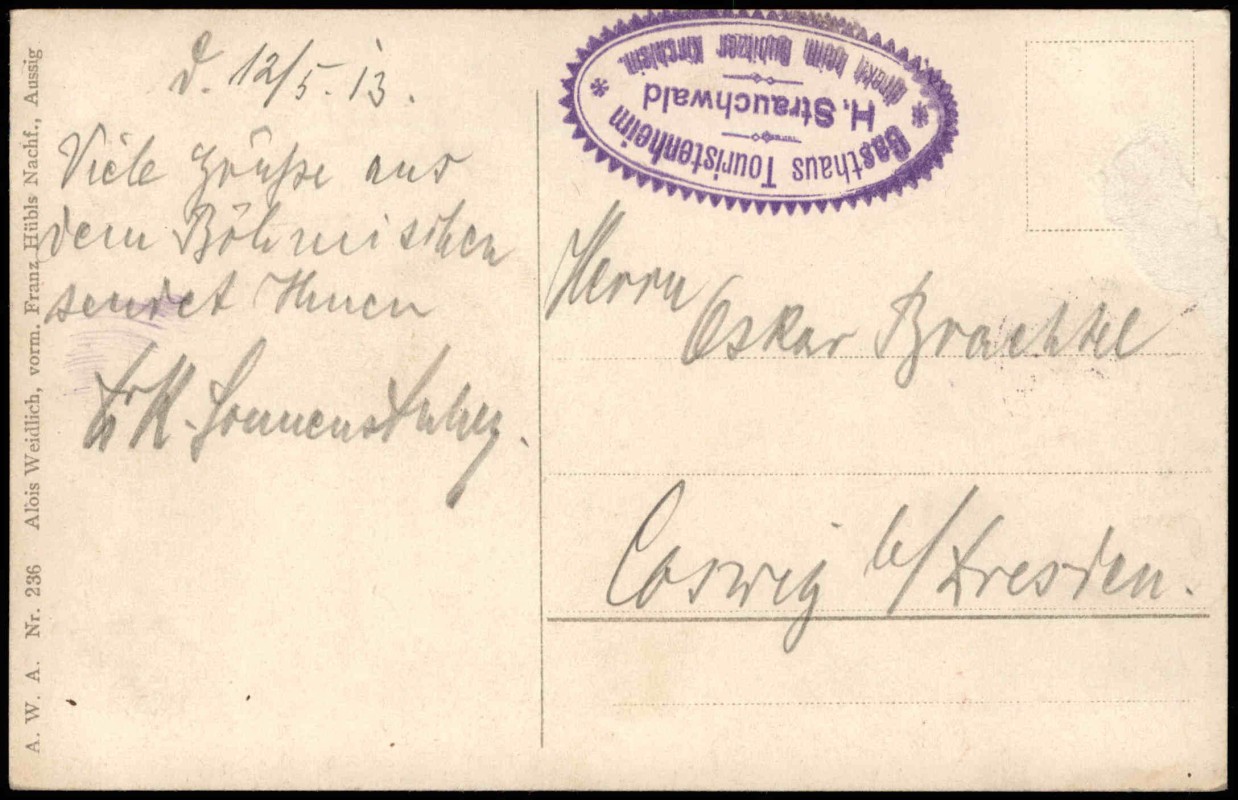 d. 12/5. 13.
Viele Grüße aus
dem Böhmischen
sendet Ihnen
Gasthaus Touristenheim
H. Strauchwald
direkt beim Qubitzer Kirchlein.
Herrn
Oskar Brachtel
Coswig b/Dresden.
A. W. A. Nr. 236 Alois Weidlich, vorm. Franz Hübls Nachf., Aussig